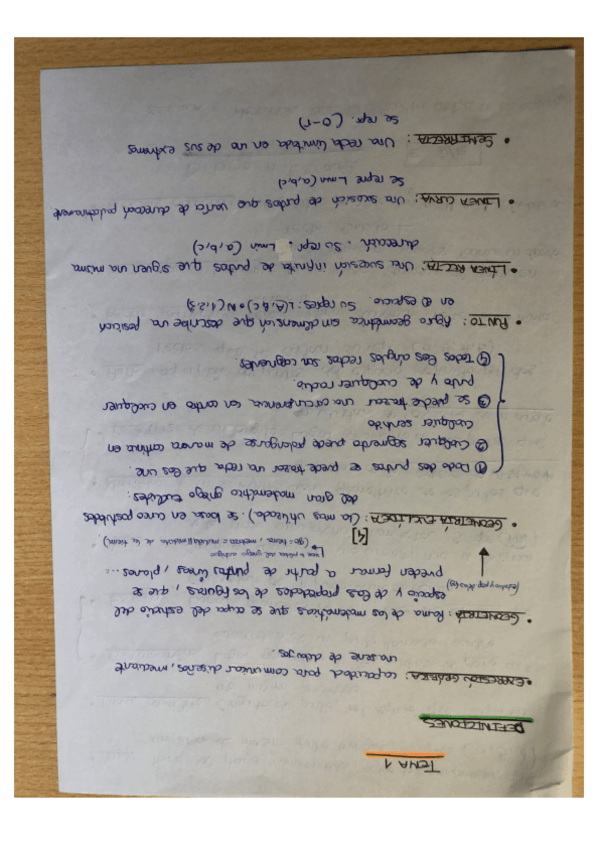 TEMA 1
DEFINIZIONES
• EXPRESIÓN GRÁFICA: capacidad para comunicar diseños, mediante
una serie de dibujos.
• GEOMETRÍA: Rama de las matemáticas que se ocupa del estudio del
espacio y de las propiedades de las figuras, que se
pueden formar a partir de puntos, líneas, planos...
(geo = tierra, metrazo = medida)
[4]
• GEOMETRÍA EUCLÍDEA: (la mas utilizada). Se basa en cinco postulados
del gran matemático griego Euclides:
① Dado dos puntos se puede trazar una recta que los une.
② Cualquier segmento puede prolongarse de manera continua en
cualquier sentido
③ Se puede trazar una circunferencia con centro en cualquier
punto y de cualquier radio
④ Todos los ángulos rectos son congruentes
• PUNTO: figura geométrica sin dimensión que describe una posición
en el espacio. Su repres: L(A,B,C) o N(1,2,3)
• LÍNEA RECTA: Una sucesión infinita de puntos que siguen una misma
dirección. Su repr. Lmin (a,b,c)
• LÍNEA CURVA: Una sucesión de puntos que varía de dirección paulatinamente
Se repre Lmin (a,b,c)
• SEMIRRECTA: Una recta limitada en uno de sus extremos
Se repr. (O-r)